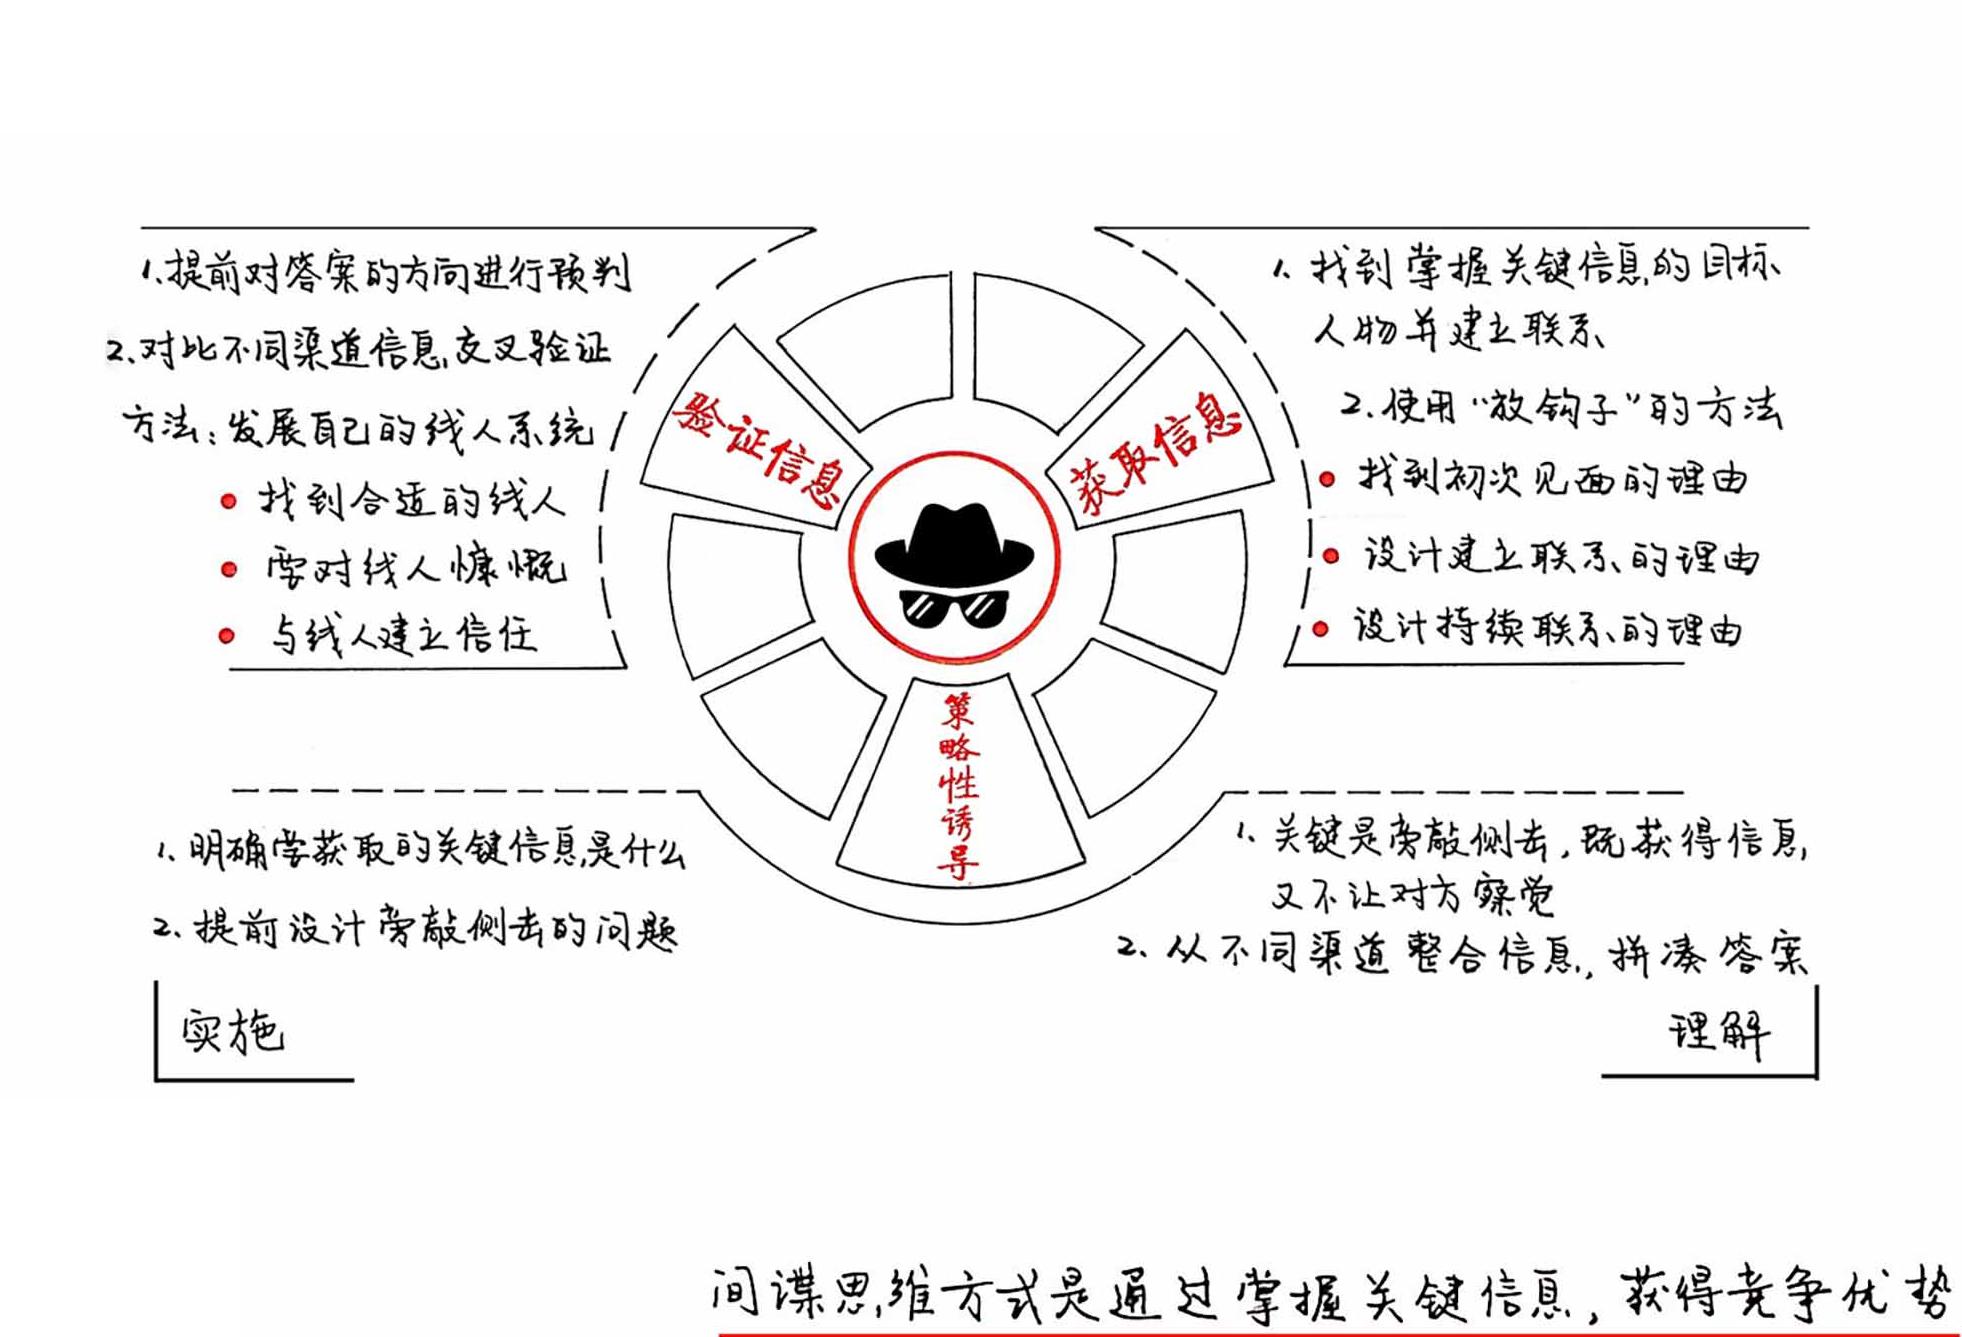 1.提前对答案的方向进行预判
2.对比不同渠道信息,交叉验证
方法:发展自己的线人系统
找到合适的线人
要对线人慷慨
与线人建立信任
验证信息
获取信息
策略性诱导
1.找到掌握关键信息的目标
人物并建立联系
2.使用“放钩子”的方法
找到初次见面的理由
设计建立联系的理由
设计持续联系的理由
1.明确要获取的关键信息是什么
2.提前设计旁敲侧击的问题
实施
1.关键是旁敲侧击,既获得信息,
又不让对方察觉
2.从不同渠道整合信息,拼凑答案
理解
间谍思维方式是通过掌握关键信息,获得竞争优势